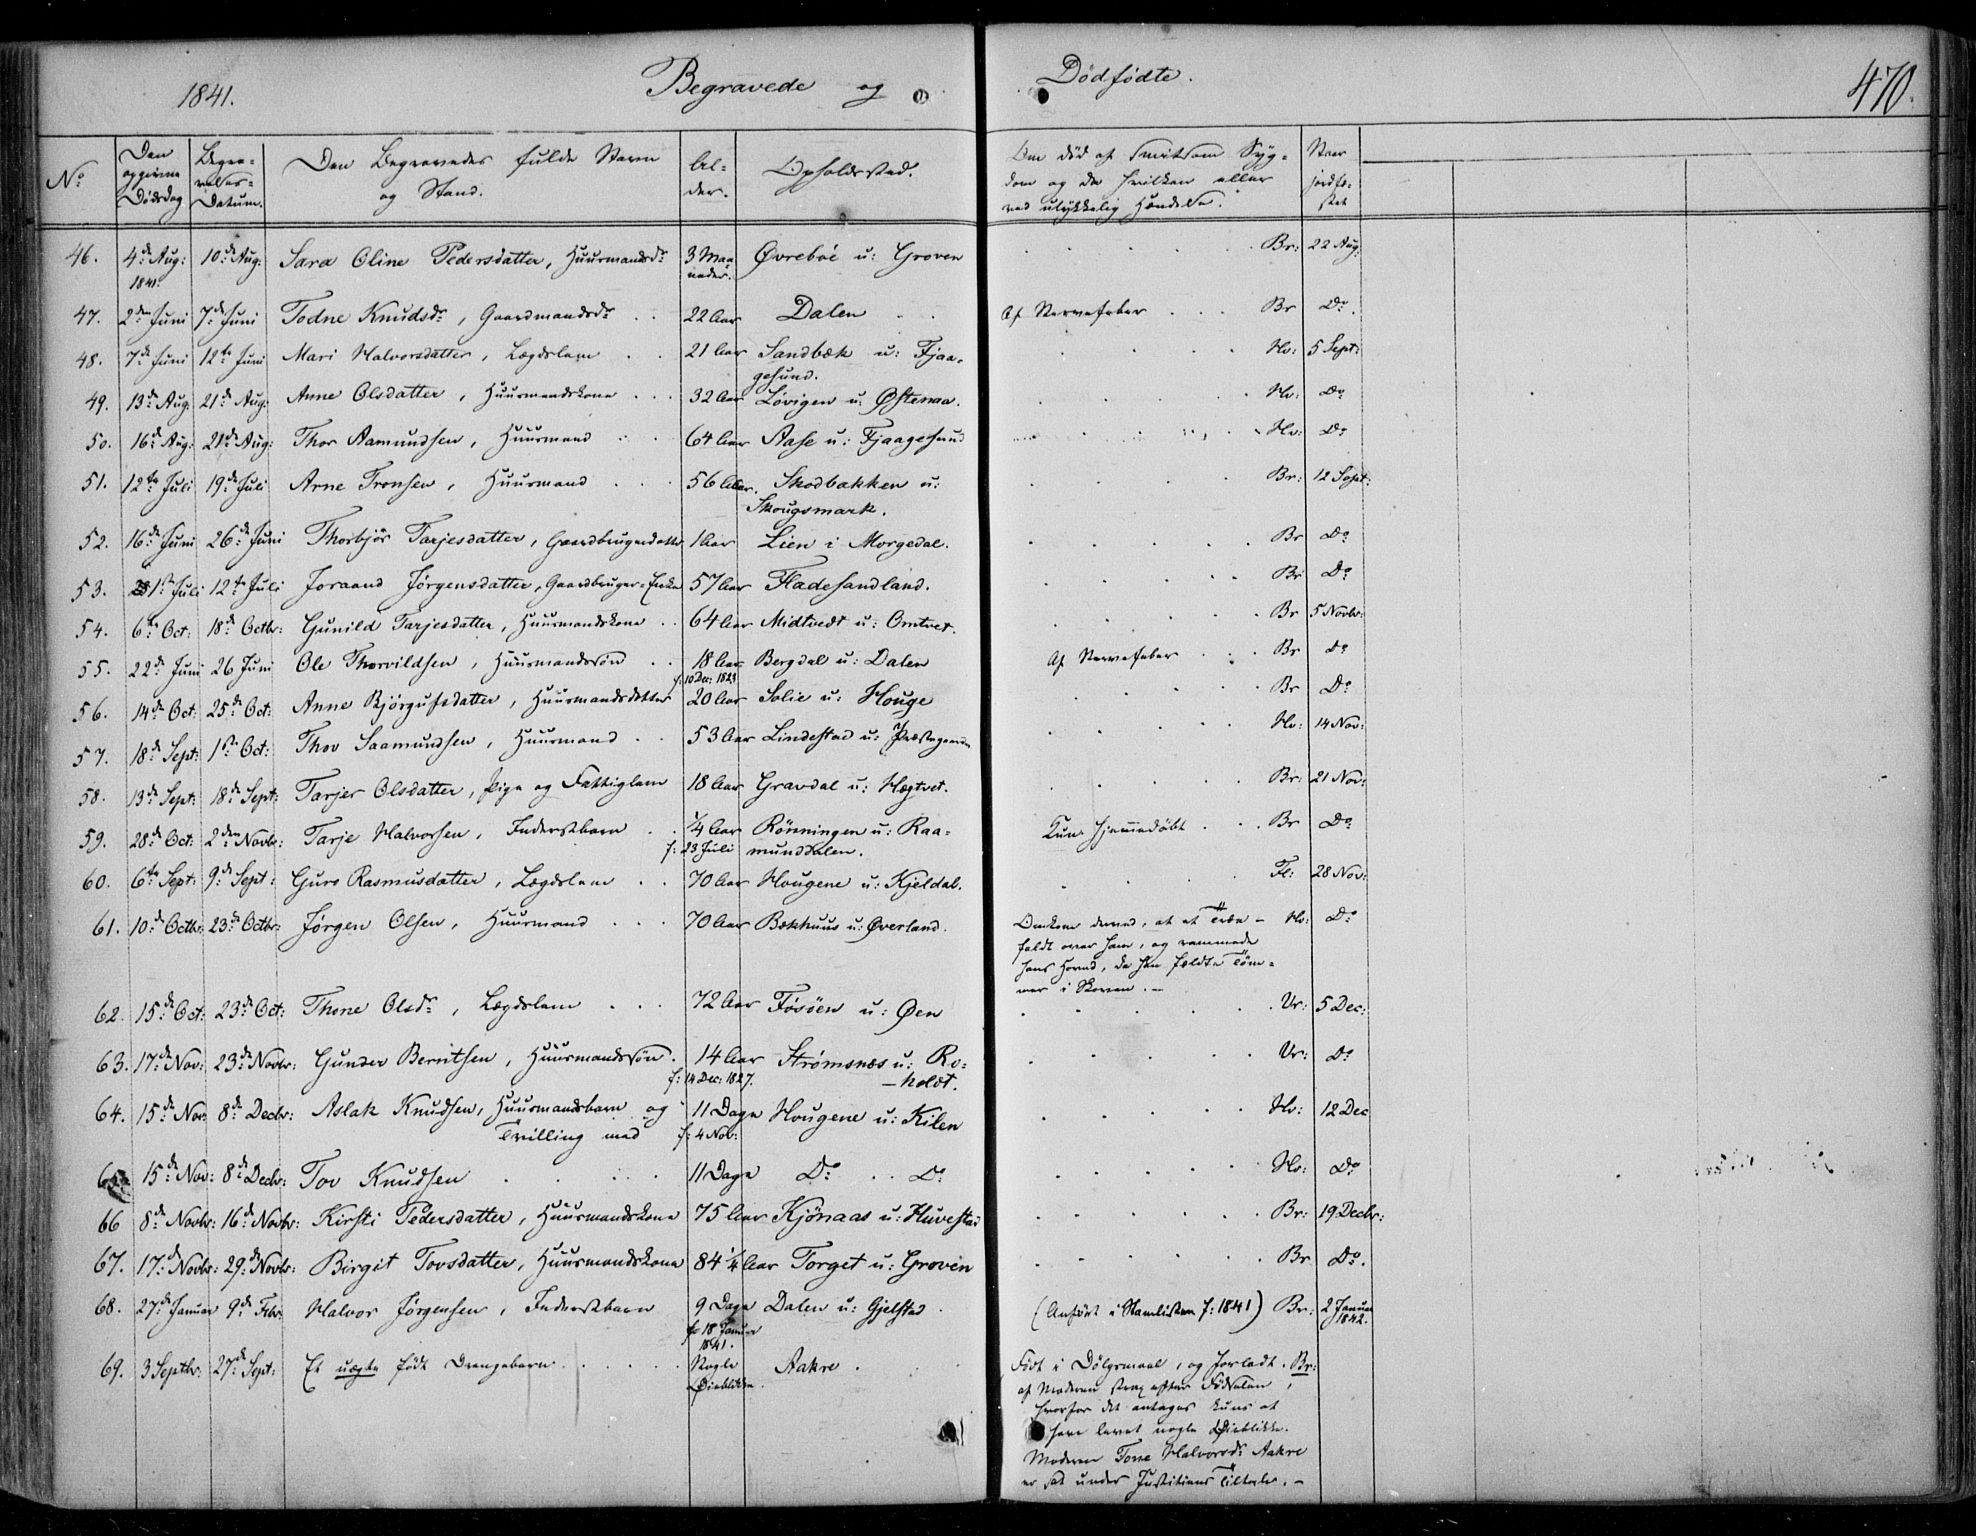 1841. Begravede og Dødfødte. 470.
No. Den opgivne Dødsdag Begravelses-Datum. Den Begravedes fulde Navn og Stand. Alder. Opholdssted. Om død af smitsom Sygdom og da hvilken eller ved ulykkelig Hændelse. Naar jordfæstet
46. 4de Aug: 1841. 10de Aug: Sara Oline Pedersdatter, Huusmandsdr 3 Maaneder. Øvreboe u: Groven Br: 22 Aug:
47. 2den Juni 7de Juni Todne Knudsdr, Gaardmandsdr 22 Aar Dalen Af Nervefeber Br Do.
48. 7de Juni 12te Juni Mari Halvorsdatter, Lægdslem 21 Aar Sandbæk u: Fjaagesund. Hv: 5 Sept:
49. 13de Aug: 21de Aug: Anne Olsdatter, Huusmandskone 32 Aar Løvigen u: Østenaa. Hv: Do
50. 16de Aug: 21de Aug: Thor Aamundsen, Huusmand 64 Aar Aase u: Fjaagesund Hv: Do
51. 12te Juli 19de Juli Arne Tronsen, Huusmand 56 Aar. Skodbakken u: Skougsmark. Br: 12 Sept:
52. 16de Juni 26de Juni Thorbjør Tarjesdatter, Gaardbrugerdatter 1 Aar Lien i Morgedal. Br Do
53. 1ste Juli 12te Juli Joraand Jørgensdatter, Gaardbruger-Enke 57 Aar Fladesandland. Br Do
54. 6te Oct: 18de Octbr: Gunild Tarjesdatter, Huusmandskone 64 Aar Midtvedt u: Omtvet. Br 5 Novbr:
55. 22de Juni 26 Juni Ole Thorvildsen, Huusmandssøn 18 Aar f: 10 Dec: 1823 Bergdal u: Dalen Af Nervefeber Br Do
56. 14de Oct: 25de Oct: Anne Bjørgufsdatter, Huusmandsdatter 20 Aar Solie u: Houge Br Do
57. 18de Sept: 1ste Oct: Thov Saamundsen, Huusmand 53 Aar Lindestad u: Præstegaarden Hv: 14 Nov:
58. 13de Sept: 18de Sept: Tarjer Olsdatter, Pige og Fattiglem 18 Aar Gravdal u: Hægtvet. Br: 21 Nov:
59. 28de Oct: 2den Novbr: Tarje Halvorsen, Inderstbarn 1/4 Aar f: 23 Juli Rønningen u: Raamunddalen. Kun hjemmedøbt Br Do
60. 6te Sept: 9de Sept: Guro Rasmusdatter, Lægdslem 70 Aar Hougene u: Kjeldal. Fl: 28 Nov:
61. 10de Octbr: 23de Octbr: Jørgen Olsen, Huusmand 70 Aar Bækhuus u: Øverland. Omkom derved, at et Træ
faldt over ham, og rammede
hans Hoved, da han fældte Tømmer
i Skoven. Hv: Do
62. 15de Oct: 23de Oct: Thone Olsdr, Lægdslem 72 Aar Føsøen u: Øen Vr: 5 Dec:
63. 17de Nov: 23de Novbr: Gunder Berntsen, Huusmandssøn 14 Aar f: 14 Dec: 1827. Strømsnæs u: Roholdt. Vr: Do
64. 15de Nov: 8de Decbr: Aslak Knudsen, Huusmandsbarn og Tvilling med 11 Dage f: 4 Nov: Hougene u: Kilen Hv: 12 Dec
65. 15de Nov: 8de Decbr: Tov Knudsen 11 Dage Do Do Hv: Do
66 8de Novbr: 16de Novbr: Kirsti Pedersdatter, Huusmandskone 75 Aar Kjønaas u: Huvestad Br: 19 Decbr:
67. 17de Novbr: 29de Novbr: Birgit Tovsdatter, Huusmandskone 84 1/4 Aar Torget u: Groven Br Do.
68. 27de Januar 9de Febr: Halvor Jørgensen, Inderstbarn 9 Dage f: 18 Januar 1841. Dalen u: Gjelstad (Anført i Navnlisten f: 1841) Br: 2 Januar 1842.
69. 3 Septbr: 27de Sept: Et uægte født Drengebarn Nogle Øieblikke. Aakre. Født i Dølgsmaal, og forladt Br:
af Moderen strax efter Fødselen,
hvorfor det antages kuns at
have levet nogle Øieblikke.
Moderen Tone Halvorsdr Aakre
er sat under Justitiens Tiltale.